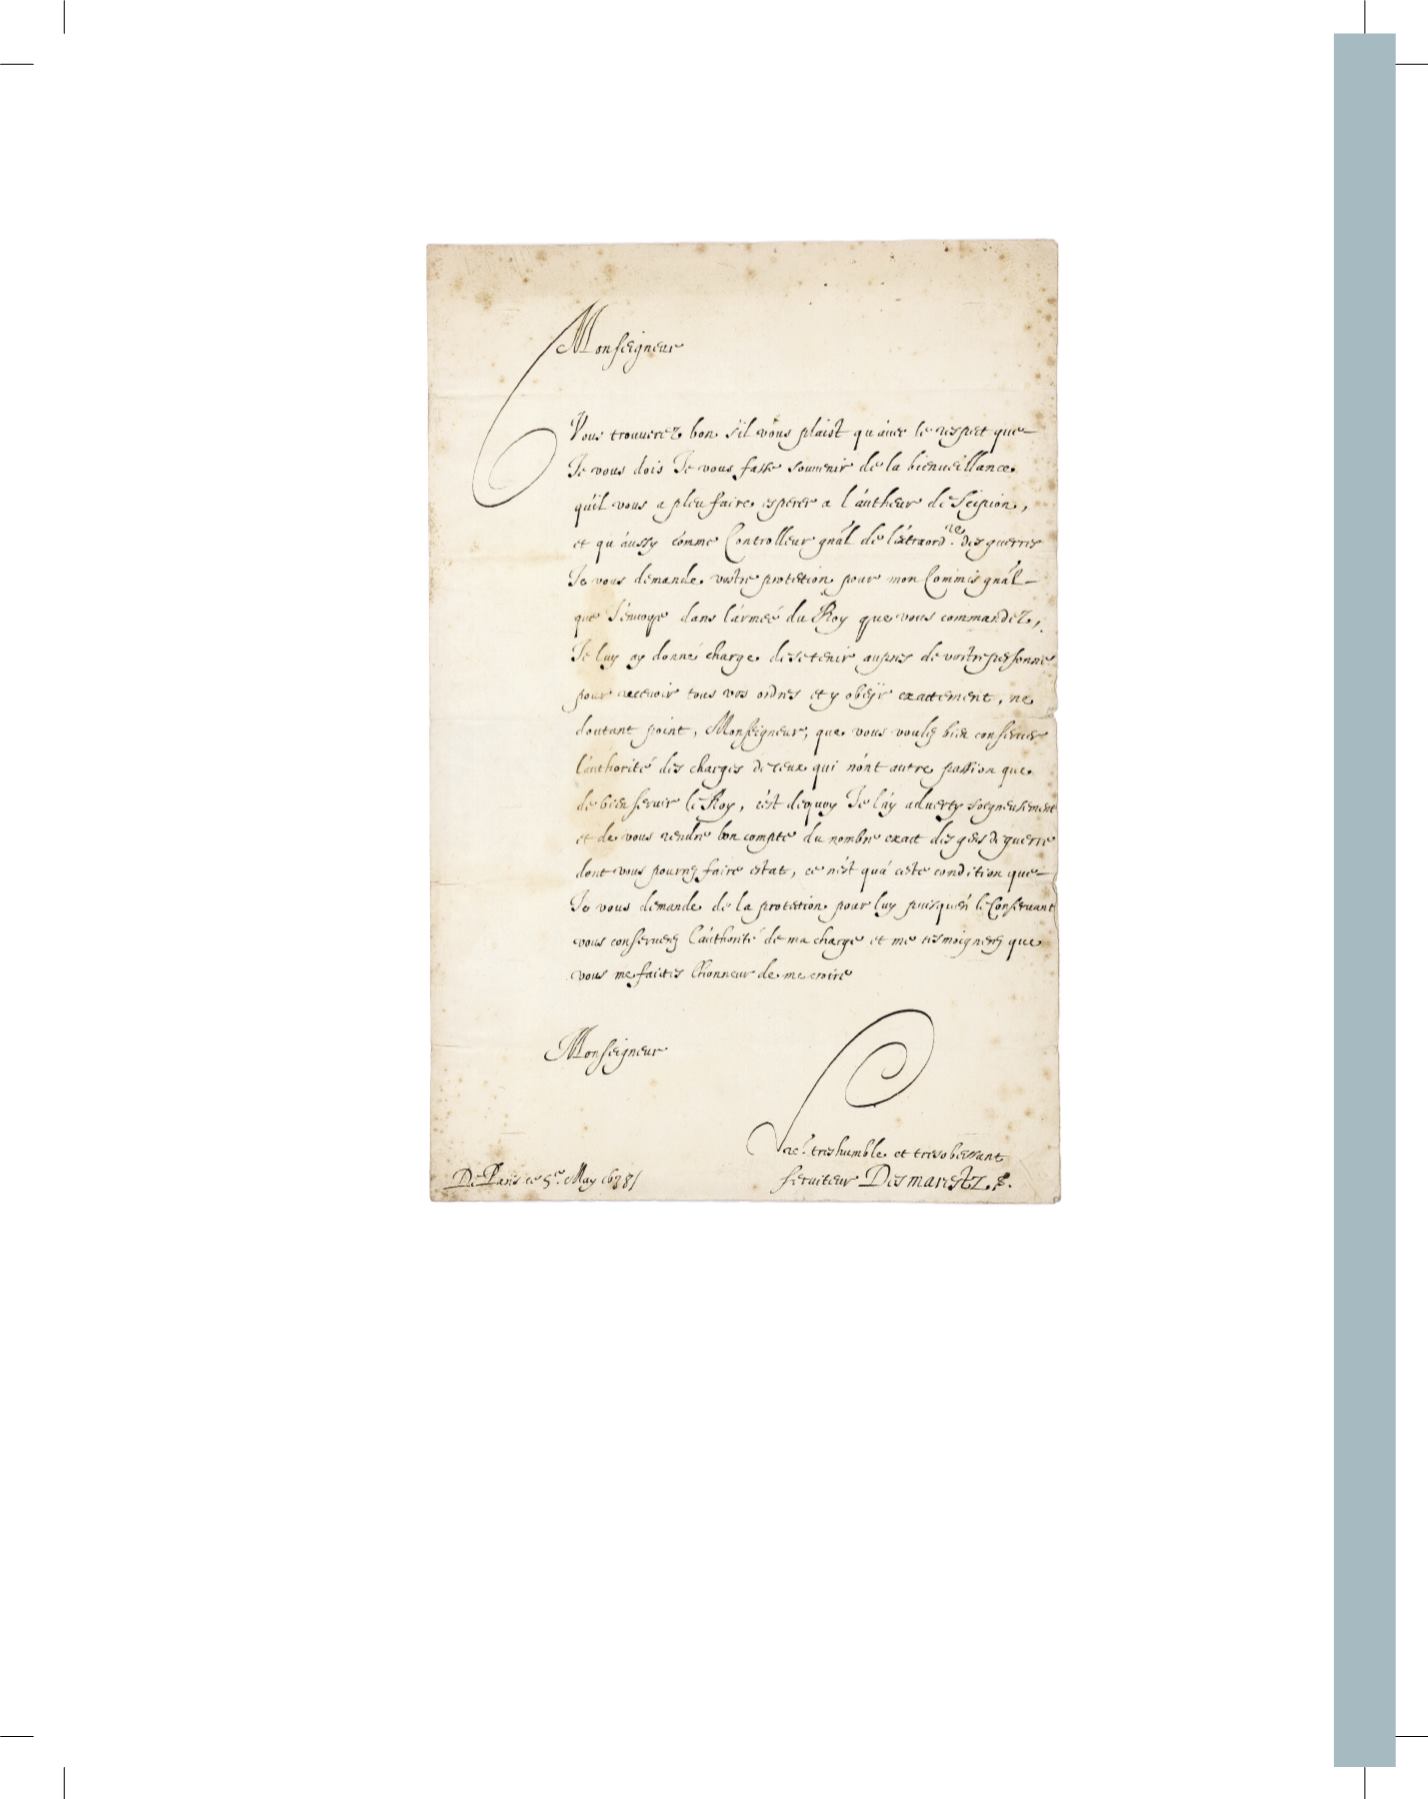 Monseigneur
Vous trouuerez bon s'il vous plaist qu'auec le respect que
Je vous dois Je vous fasse souuenir de la bienueillance
qu'il vous a pleu faire esperer a l'autheur de Scipion,
et qu'aussy comme Controlleur gñal de l'extraord.re des guerres
Je vous demande vostre protection pour mon Commis gñal
que J'enuoye dans l'armeé du Roy que vous commandez,
Je luy ay donné charge de se tenir aupres de vostre personne
pour receuoir tous vos ordres et y obeÿr exactement, ne
doutant point, Monseigneur, que vous voulez bien conseruer
l'authorité des charges de ceux qui n'ont autre passion que
de bien seruir le Roy, c'est dequoy Je l'ay aduerty soigneusement
et de vous rendre bon compte du nombre exact des gẽs de guerre
dont vous pourrez faire estat, ce n'est qu'a ceste condition que
Je vous demande de la protection pour luy puisqu'en le Conseruant
vous conseruerez l'authorité de ma charge et me tesmoignerez que
vous me faictes l'honneur de me croire
Monseigneur
treshumble et tresobeissant
De Paris ce 5.e May 1638
seruiteur Desmarestz